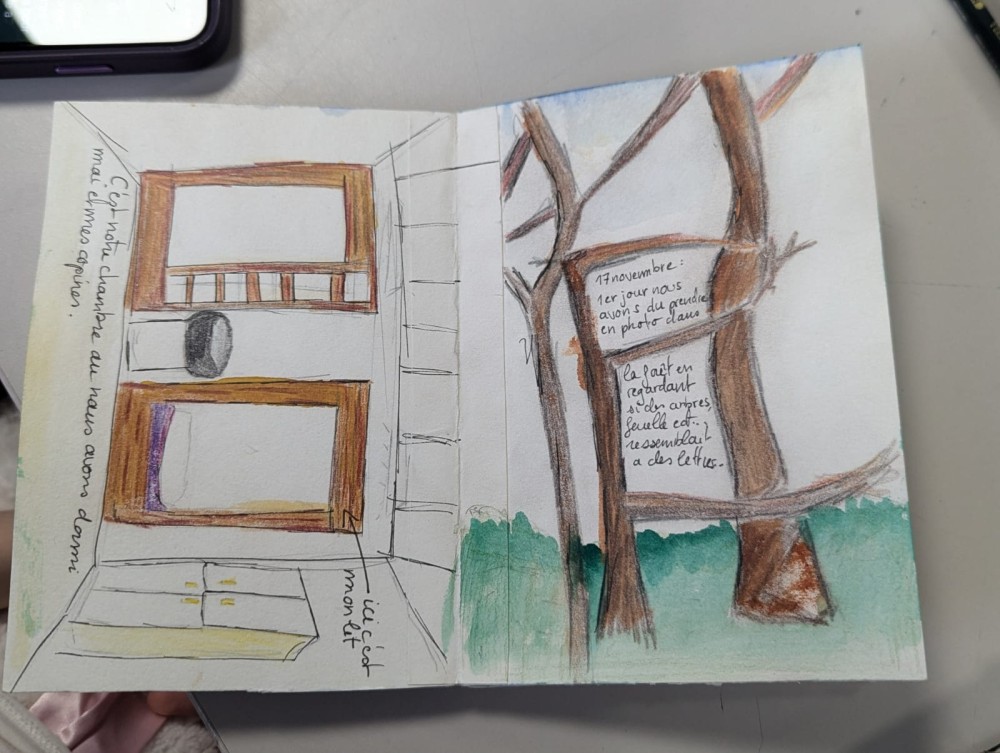 C'est notre chambre au nous avons dormi
mai et mes copines.
ici c'est
mon lit
17 novembre :
1er jour nous
avons du prendre
en photo dans
la foêt en
regardant
si des arbres,
feuille ect...
ressemblait
a des lettres.